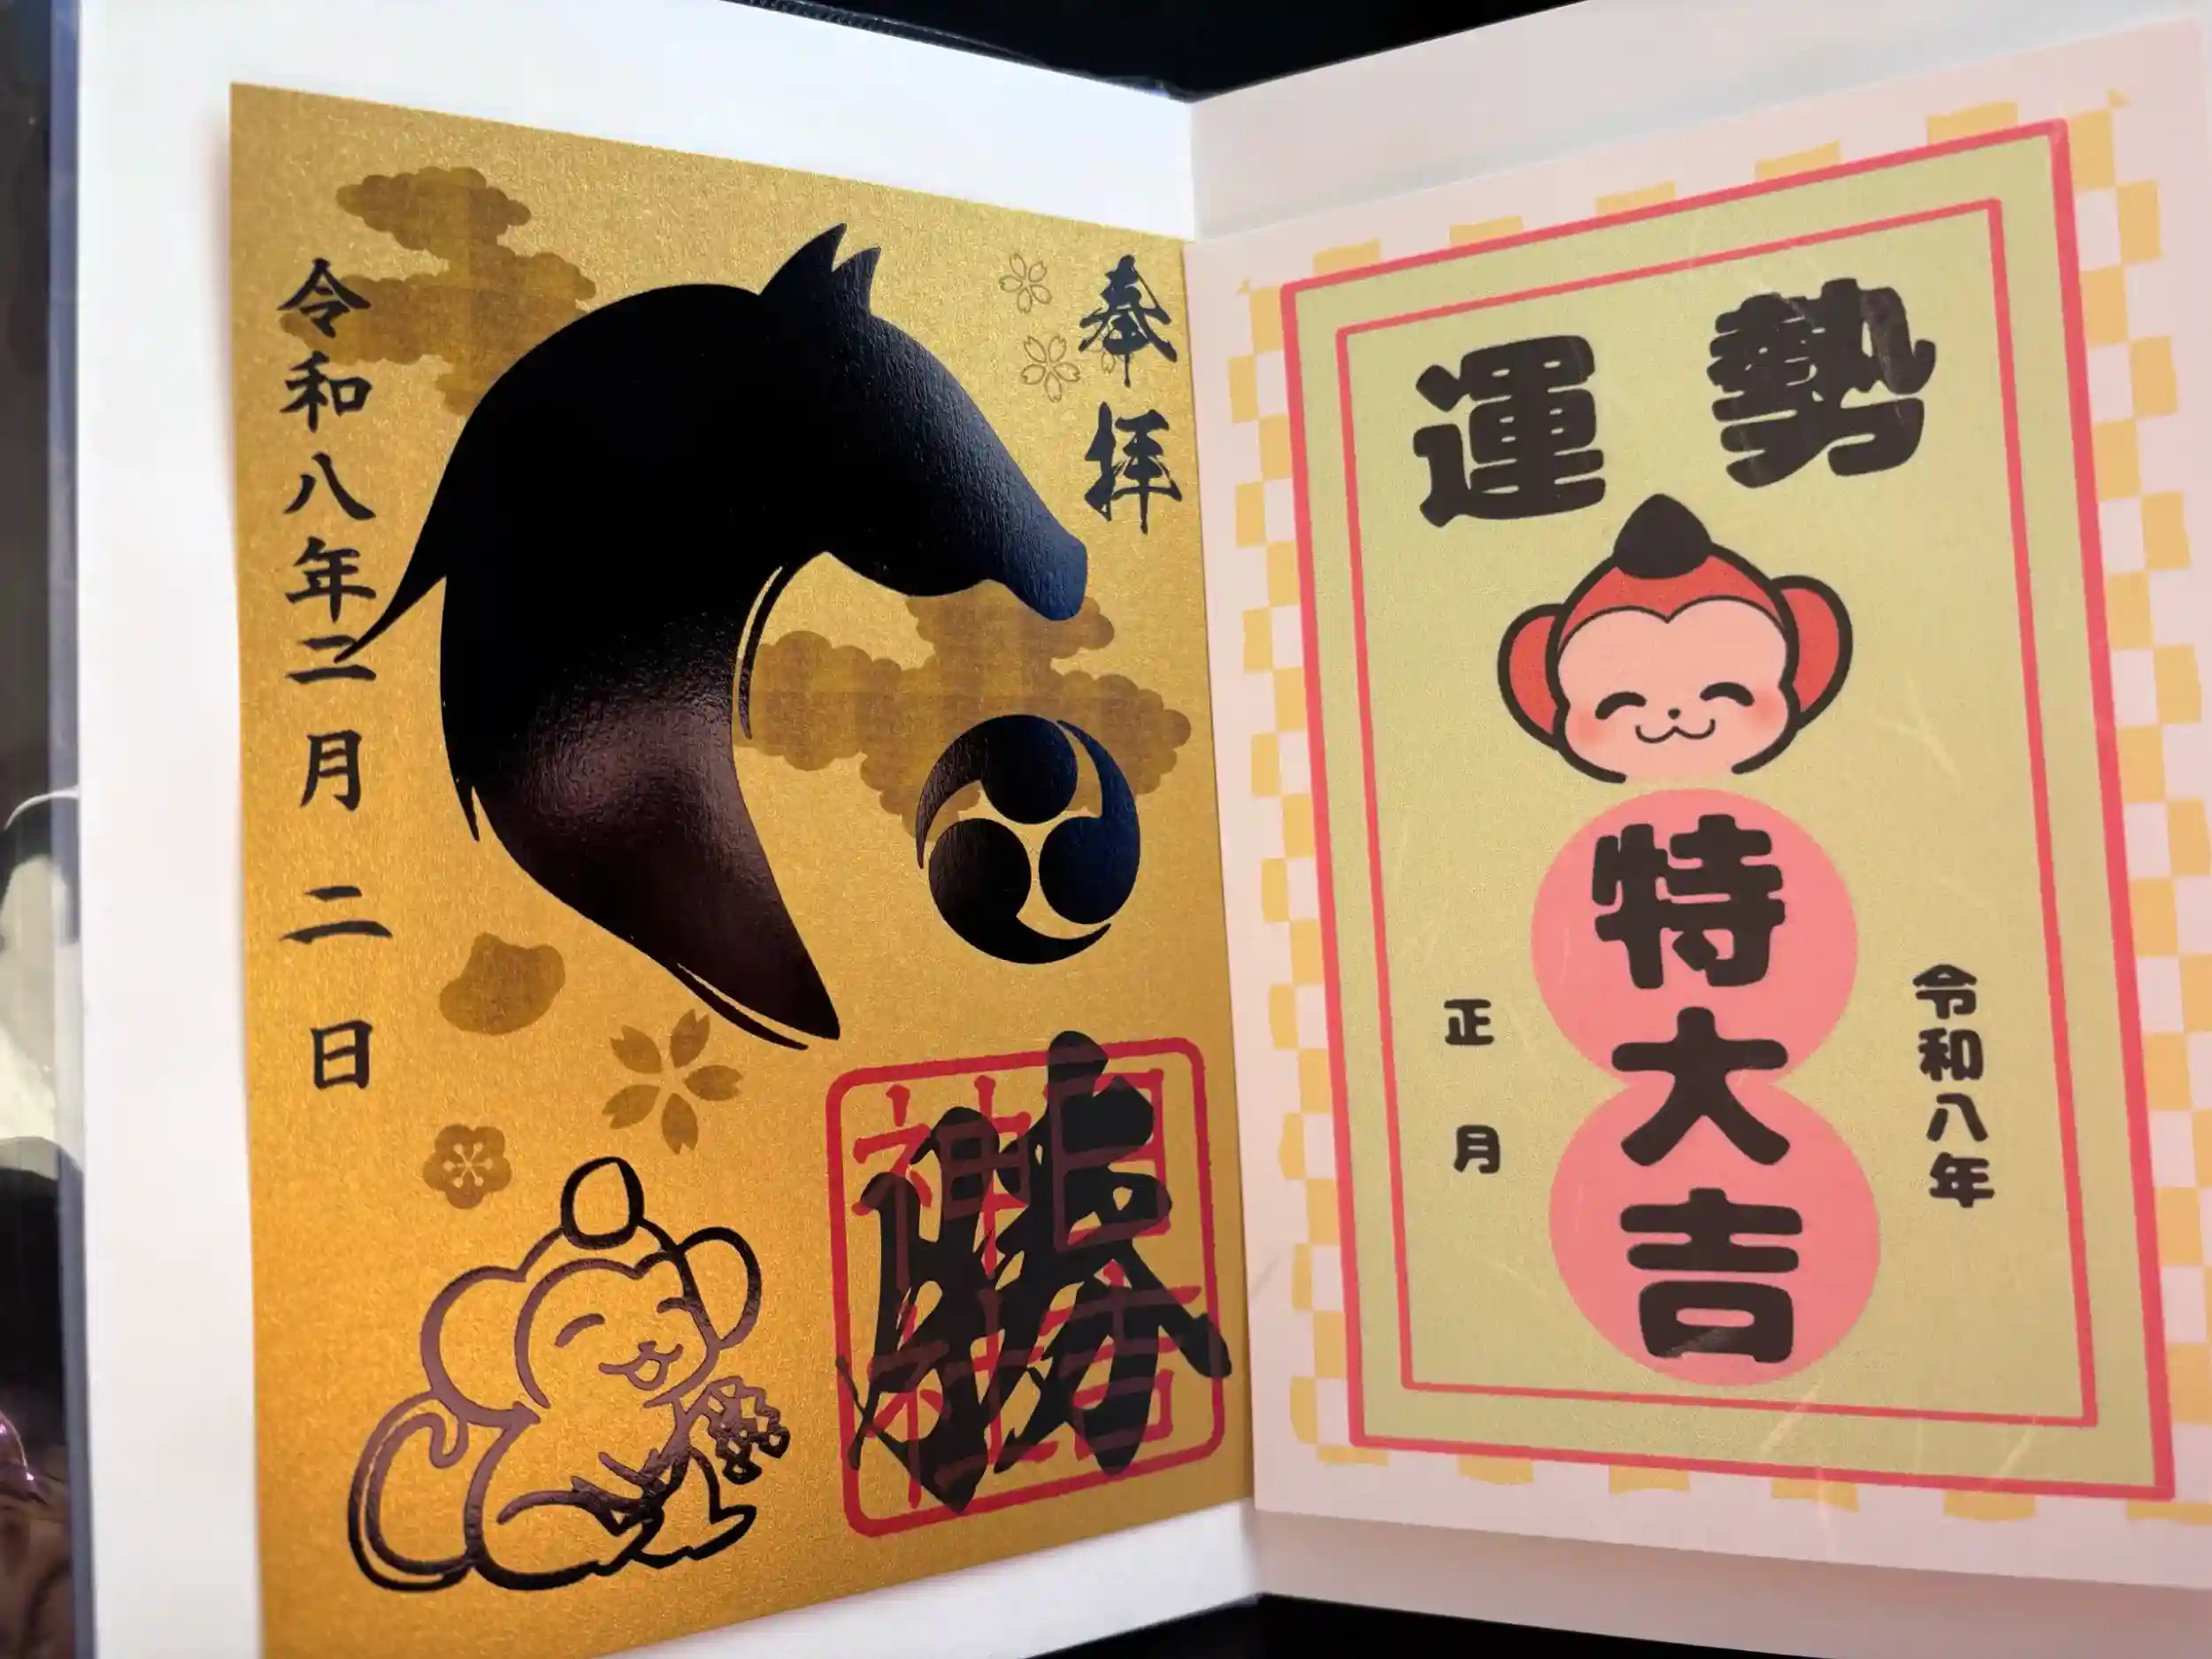 奉拝
勝
日吉
神社
令和八年二月二日
運勢
特大吉
令和八年
正月